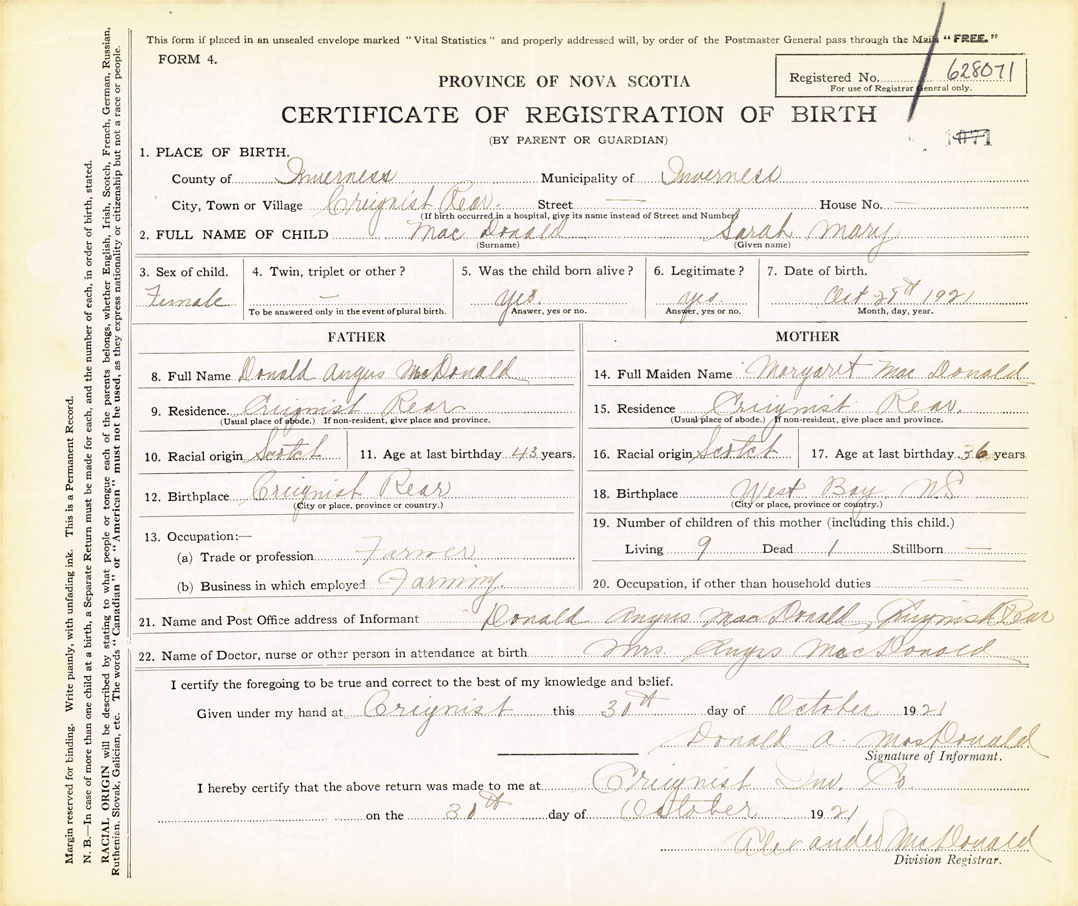 This form if placed in an unsealed envelope marked "Vital Statistics" and properly addressed will, by order of the Postmaster General pass through the Mails "FREE."
FORM 4.
PROVINCE OF NOVA SCOTIA
Registered No. 628071
For use of Registrar General only.
CERTIFICATE OF REGISTRATION OF BIRTH
(BY PARENT OR GUARDIAN)
1. PLACE OF BIRTH.
County of Inverness Municipality of Inverness
City, Town or Village Creignish Rear. Street — House No. —
(If birth occurred in a hospital, give its name instead of Street and Number)
2. FULL NAME OF CHILD Mac Donald Sarah Mary
(Surname) (Given name)
3. Sex of child. 4. Twin, triplet or other? 5. Was the child born alive? 6. Legitimate? 7. Date of birth.
Female — yes. yes. Oct 29th 1921
To be answered only in the event of plural birth. Answer, yes or no. Answer, yes or no. Month, day, year.
FATHER
8. Full Name Donald Angus McDonald
9. Residence. Creignish Rear
(Usual place of abode.) If non-resident, give place and province.
10. Racial origin Scotch 11. Age at last birthday 43 years.
12. Birthplace Creignish Rear
(City or place, province or country.)
13. Occupation:—
(a) Trade or profession Farmer
(b) Business in which employed Farming
MOTHER
14. Full Maiden Name Margaret Mac Donald
15. Residence Creignish Rear.
(Usual place of abode.) If non-resident, give place and province.
16. Racial origin Scotch 17. Age at last birthday 36 years
18. Birthplace West Bay, NS
(City or place, province or country.)
19. Number of children of this mother (including this child.)
Living 9 Dead 1 Stillborn —
20. Occupation, if other than household duties —
21. Name and Post Office address of Informant Donald Angus MacDonald, Creignish Rear
22. Name of Doctor, nurse or other person in attendance at birth Mrs. Angus MacDonald
I certify the foregoing to be true and correct to the best of my knowledge and belief.
Given under my hand at Creignish this 30th day of October 1921
Donald A. MacDonald
Signature of Informant.
I hereby certify that the above return was made to me at Creignish Inv. Co
on the 30th day of October 1921
Alexander McDonald
Division Registrar.
Margin reserved for binding. Write plainly, with unfading ink. This is a Permanent Record.
N. B.—In case of more than one child at a birth, a Separate Return must be made for each, and the number of each, in order of birth, stated.
RACIAL ORIGIN will be described by stating to what people or tongue each of the parents belongs, whether English, Irish, Scotch, French, German, Russian,
Ruthenian, Slovak, Galician, etc. The words "Canadian" or "American" must not be used, as they express nationality or citizenship but not a race or people.